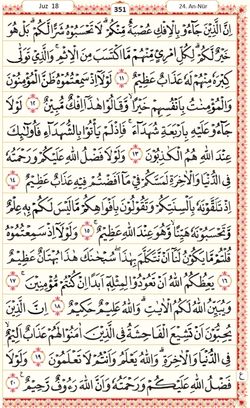 Juz 18 351 24. An-Nūr
اِنَّ الَّذِينَ جَاۤءُو بِالْاِفْكِ عُصْبَةٌ مِنْكُمْ لَا تَحْسَبُوهُ شَرًّا لَكُمْ بَلْ هُوَ
خَيْرٌ لَكُمْ لِكُلِّ امْرِئٍ مِنْهُمْ مَا اكْتَسَبَ مِنَ الْاِثْمِ وَالَّذِي تَوَلّٰى
كِبْرَهُ مِنْهُمْ لَهُ عَذَابٌ عَظِيمٌ ١١ لَوْلَاۤ اِذْ سَمِعْتُمُوهُ ظَنَّ الْمُؤْمِنُونَ
وَالْمُؤْمِنَاتُ بِاَنْفُسِهِمْ خَيْرًا وَقَالُوا هٰذَاۤ اِفْكٌ مُبِينٌ ١٢ لَوْلَا
جَاۤءُو عَلَيْهِ بِاَرْبَعَةِ شُهَدَاۤءَ فَاِذْ لَمْ يَأْتُوا بِالشُّهَدَاۤءِ فَاُولٰۤئِكَ
عِنْدَ اللّٰهِ هُمُ الْكَاذِبُونَ ١٣ وَلَوْلَا فَضْلُ اللّٰهِ عَلَيْكُمْ وَرَحْمَتُهُ
فِي الدُّنْيَا وَالْاٰخِرَةِ لَمَسَّكُمْ فِي مَاۤ اَفَضْتُمْ فِيهِ عَذَابٌ عَظِيمٌ ١٤
اِذْ تَلَقَّوْنَهُ بِاَلْسِنَتِكُمْ وَتَقُولُونَ بِاَفْوَاهِكُمْ مَا لَيْسَ لَكُمْ بِهِ عِلْمٌ
وَتَحْسَبُونَهُ هَيِّنًا وَهُوَ عِنْدَ اللّٰهِ عَظِيمٌ ١٥ وَلَوْلَاۤ اِذْ سَمِعْتُمُوهُ
قُلْتُمْ مَا يَكُونُ لَنَاۤ اَنْ نَتَكَلَّمَ بِهٰذَا سُبْحَانَكَ هٰذَا بُهْتَانٌ عَظِيمٌ
١٦ يَعِظُكُمُ اللّٰهُ اَنْ تَعُودُوا لِمِثْلِهِ اَبَدًا اِنْ كُنْتُمْ مُؤْمِنِينَ ١٧
وَيُبَيِّنُ اللّٰهُ لَكُمُ الْاٰيَاتِ وَاللّٰهُ عَلِيمٌ حَكِيمٌ ١٨ اِنَّ الَّذِينَ
يُحِبُّونَ اَنْ تَشِيعَ الْفَاحِشَةُ فِي الَّذِينَ اٰمَنُوا لَهُمْ عَذَابٌ اَلِيمٌ
فِي الدُّنْيَا وَالْاٰخِرَةِ وَاللّٰهُ يَعْلَمُ وَاَنْتُمْ لَا تَعْلَمُونَ ١٩ وَلَوْلَا
فَضْلُ اللّٰهِ عَلَيْكُمْ وَرَحْمَتُهُ وَاَنَّ اللّٰهَ رَءُوفٌ رَحِيمٌ ٢٠